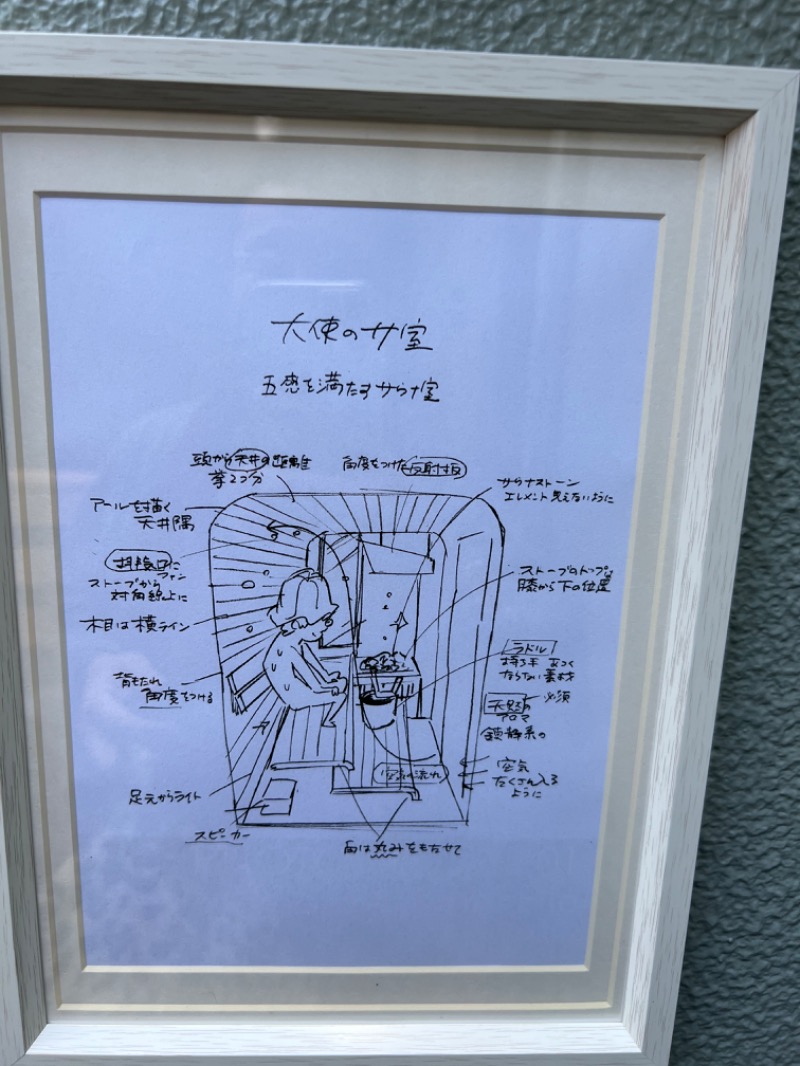 天使のサ室
五感を満たすサウナ室
頭から天井の距離
拳2つ分
角度をつけた反射板
サウナストーン
エレメント見えないように
アールを描く
天井隅
排換口に
ファン
ストーブから
対角線上に
木目は横ライン
背もたれ
角度をつける
足元からライト
スピーカー
ストーブのトップは
膝から下の位置
ラドル
持ち手 あつく
ならない素材
必須
天然の
アロマ
鎮静系の
空気の流れ
空気
たくさん入る
ように
角は丸みをもたせて